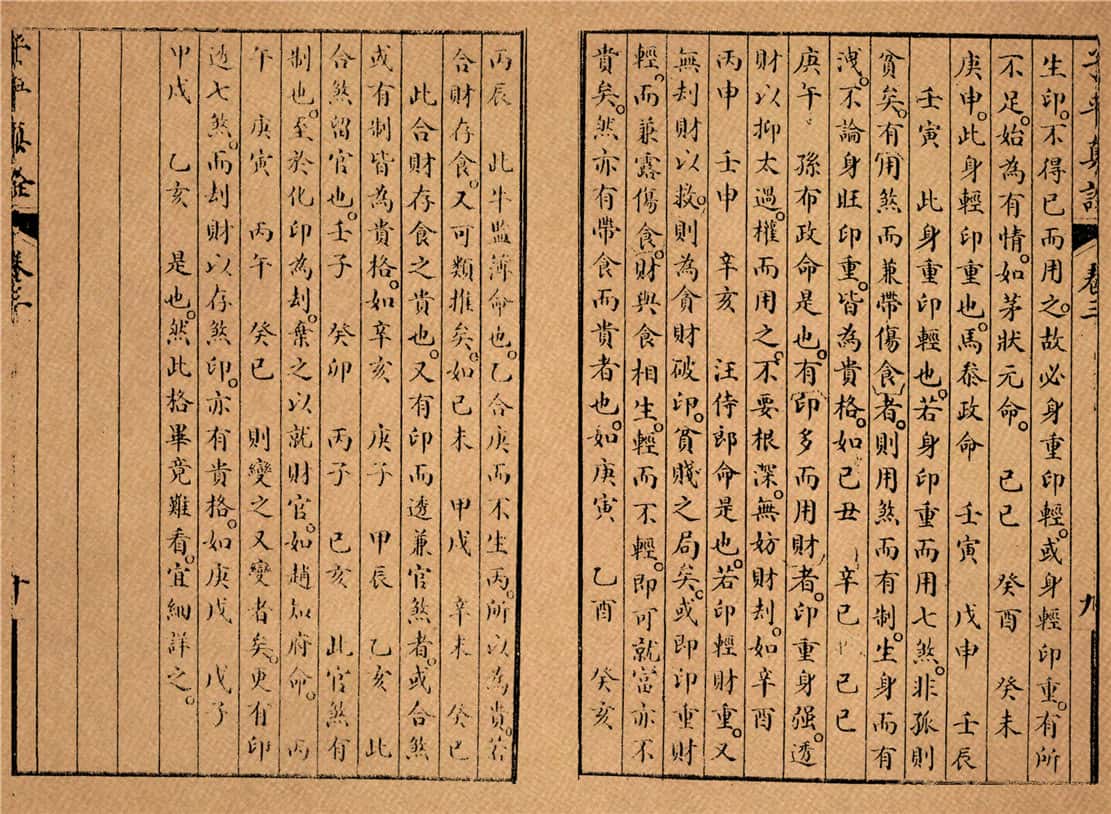 子平真詮 卷三 九
生印。不得已而用之。故必身重印輕。或身輕印重。有所
不足。始為有情。如茅狀元命。 己巳 癸酉 癸未
庚申。此身輕印重也。馬泰政命 壬寅 戊申 壬辰
壬寅 此身重印輕也。若身印重而用七煞。非孤則
貧矣。有用煞而兼帶傷食者。則用煞而有制。生身而有
洩。不論身旺印重。皆為貴格。如己丑 辛巳 己巳
庚午 孫布政命是也。有印多而用財者。印重身强。透
財以抑太過。權而用之。不要根深。無妨財刦。如辛酉
丙申 壬申 辛亥 汪侍郎命是也。若印輕財重。又
無刦財以救。則為貪財破印。貧賤之局矣。或即印重財
輕。而兼露傷食。財與食相生。輕而不輕。即可就富亦不
貴矣。然亦有帶食而貴者也。如庚寅 乙酉 癸亥
丙辰 此牛監簿命也。乙合庚而不生丙。所以為貴。若
合財存食。又可類推矣。如己未 甲戌 辛未 癸巳
此合財存食之貴也。又有印而透兼官煞者。或合煞
或有制皆為貴格。如辛亥 庚子 甲辰 乙亥 此
合煞留官也。壬子 癸卯 丙子 己亥 此官煞有
制也。至於化印為刦。棄之以就財官。如趙知府命。 丙
午 庚寅 丙午 癸巳 則變之又變者矣。更有印
透七煞。而刦財以存煞印。亦有貴格。如庚戌 戊子
甲戌 乙亥 是也。然此格畢竟難看。宜細詳之。
子平真詮 卷三 十